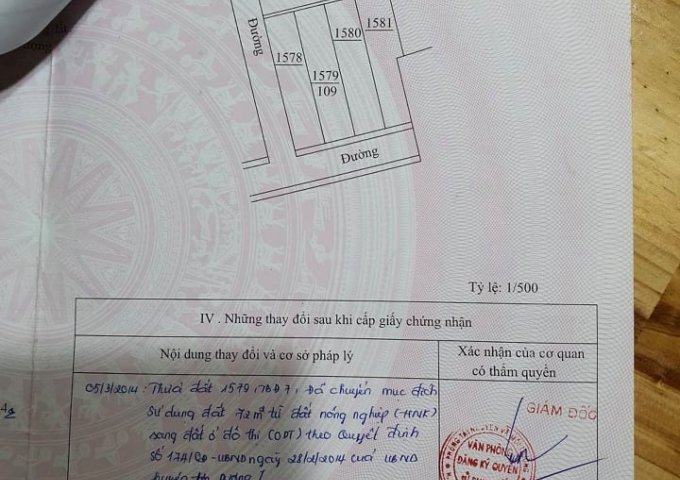 Đường
1578
1579
109
1580
1581
Đường
Tỷ lệ: 1/500
IV . Những thay đổi sau khi cấp giấy chứng nhận
Nội dung thay đổi và cơ sở pháp lý
Xác nhận của cơ quan
có thẩm quyền
05/3/2014: Thửa đất 1579, TBĐ 7, Đã chuyển mục đích
Sử dụng đất 72m² từ đất nông nghiệp (HNK)
sang đất ở đô thị (ODT) theo Quyết định
Số 174/QĐ-UBND ngày 28/2/2014 của UBND
huyện
GIÁM ĐỐC
VĂN PHÒNG
ĐĂNG KÝ QUYỀN